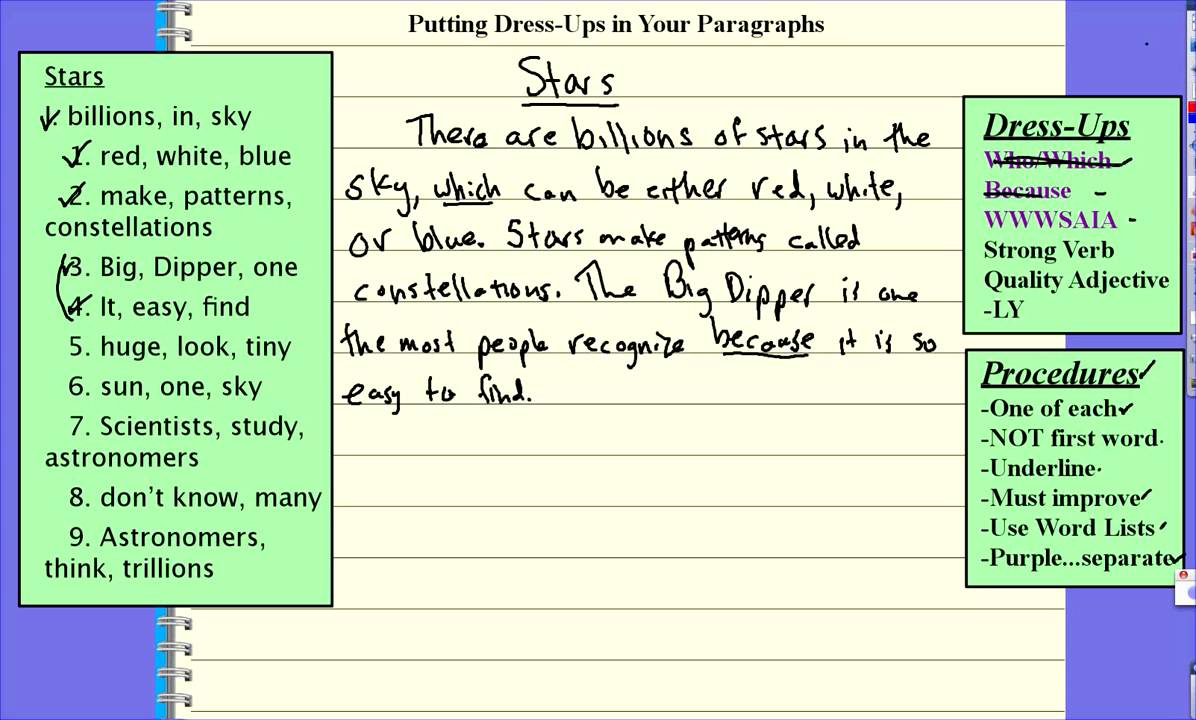 Putting Dress-Ups in Your Paragraphs
Stars
I. billions, in, sky
1. red, white, blue
2. make, patterns,
constellations
3. Big, Dipper, one
4. It, easy, find
5. huge, look, tiny
6. sun, one, sky
7. Scientists, study,
astronomers
8. don't know, many
9. Astronomers,
think, trillions
Stars
There are billions of stars in the
sky, which can be either red, white,
or blue. Stars make patterns called
constellations. The Big Dipper is one
the most people recognize because it is so
easy to find.
Dress-Ups
Who/Which
Because
WWWSAIA
Strong Verb
Quality Adjective
-LY
Procedures
-One of each
-NOT first word
-Underline
-Must improve
-Use Word Lists
-Purple...separate